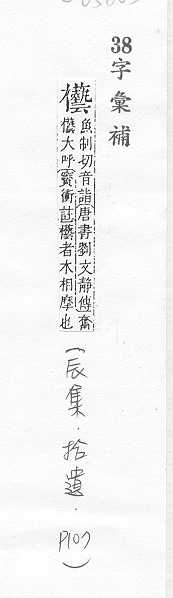 38字彙補
魚制切音詣唐書劉文靜傳奮
大呼竇衝註者木相摩也
(辰集.拾遺.P107)